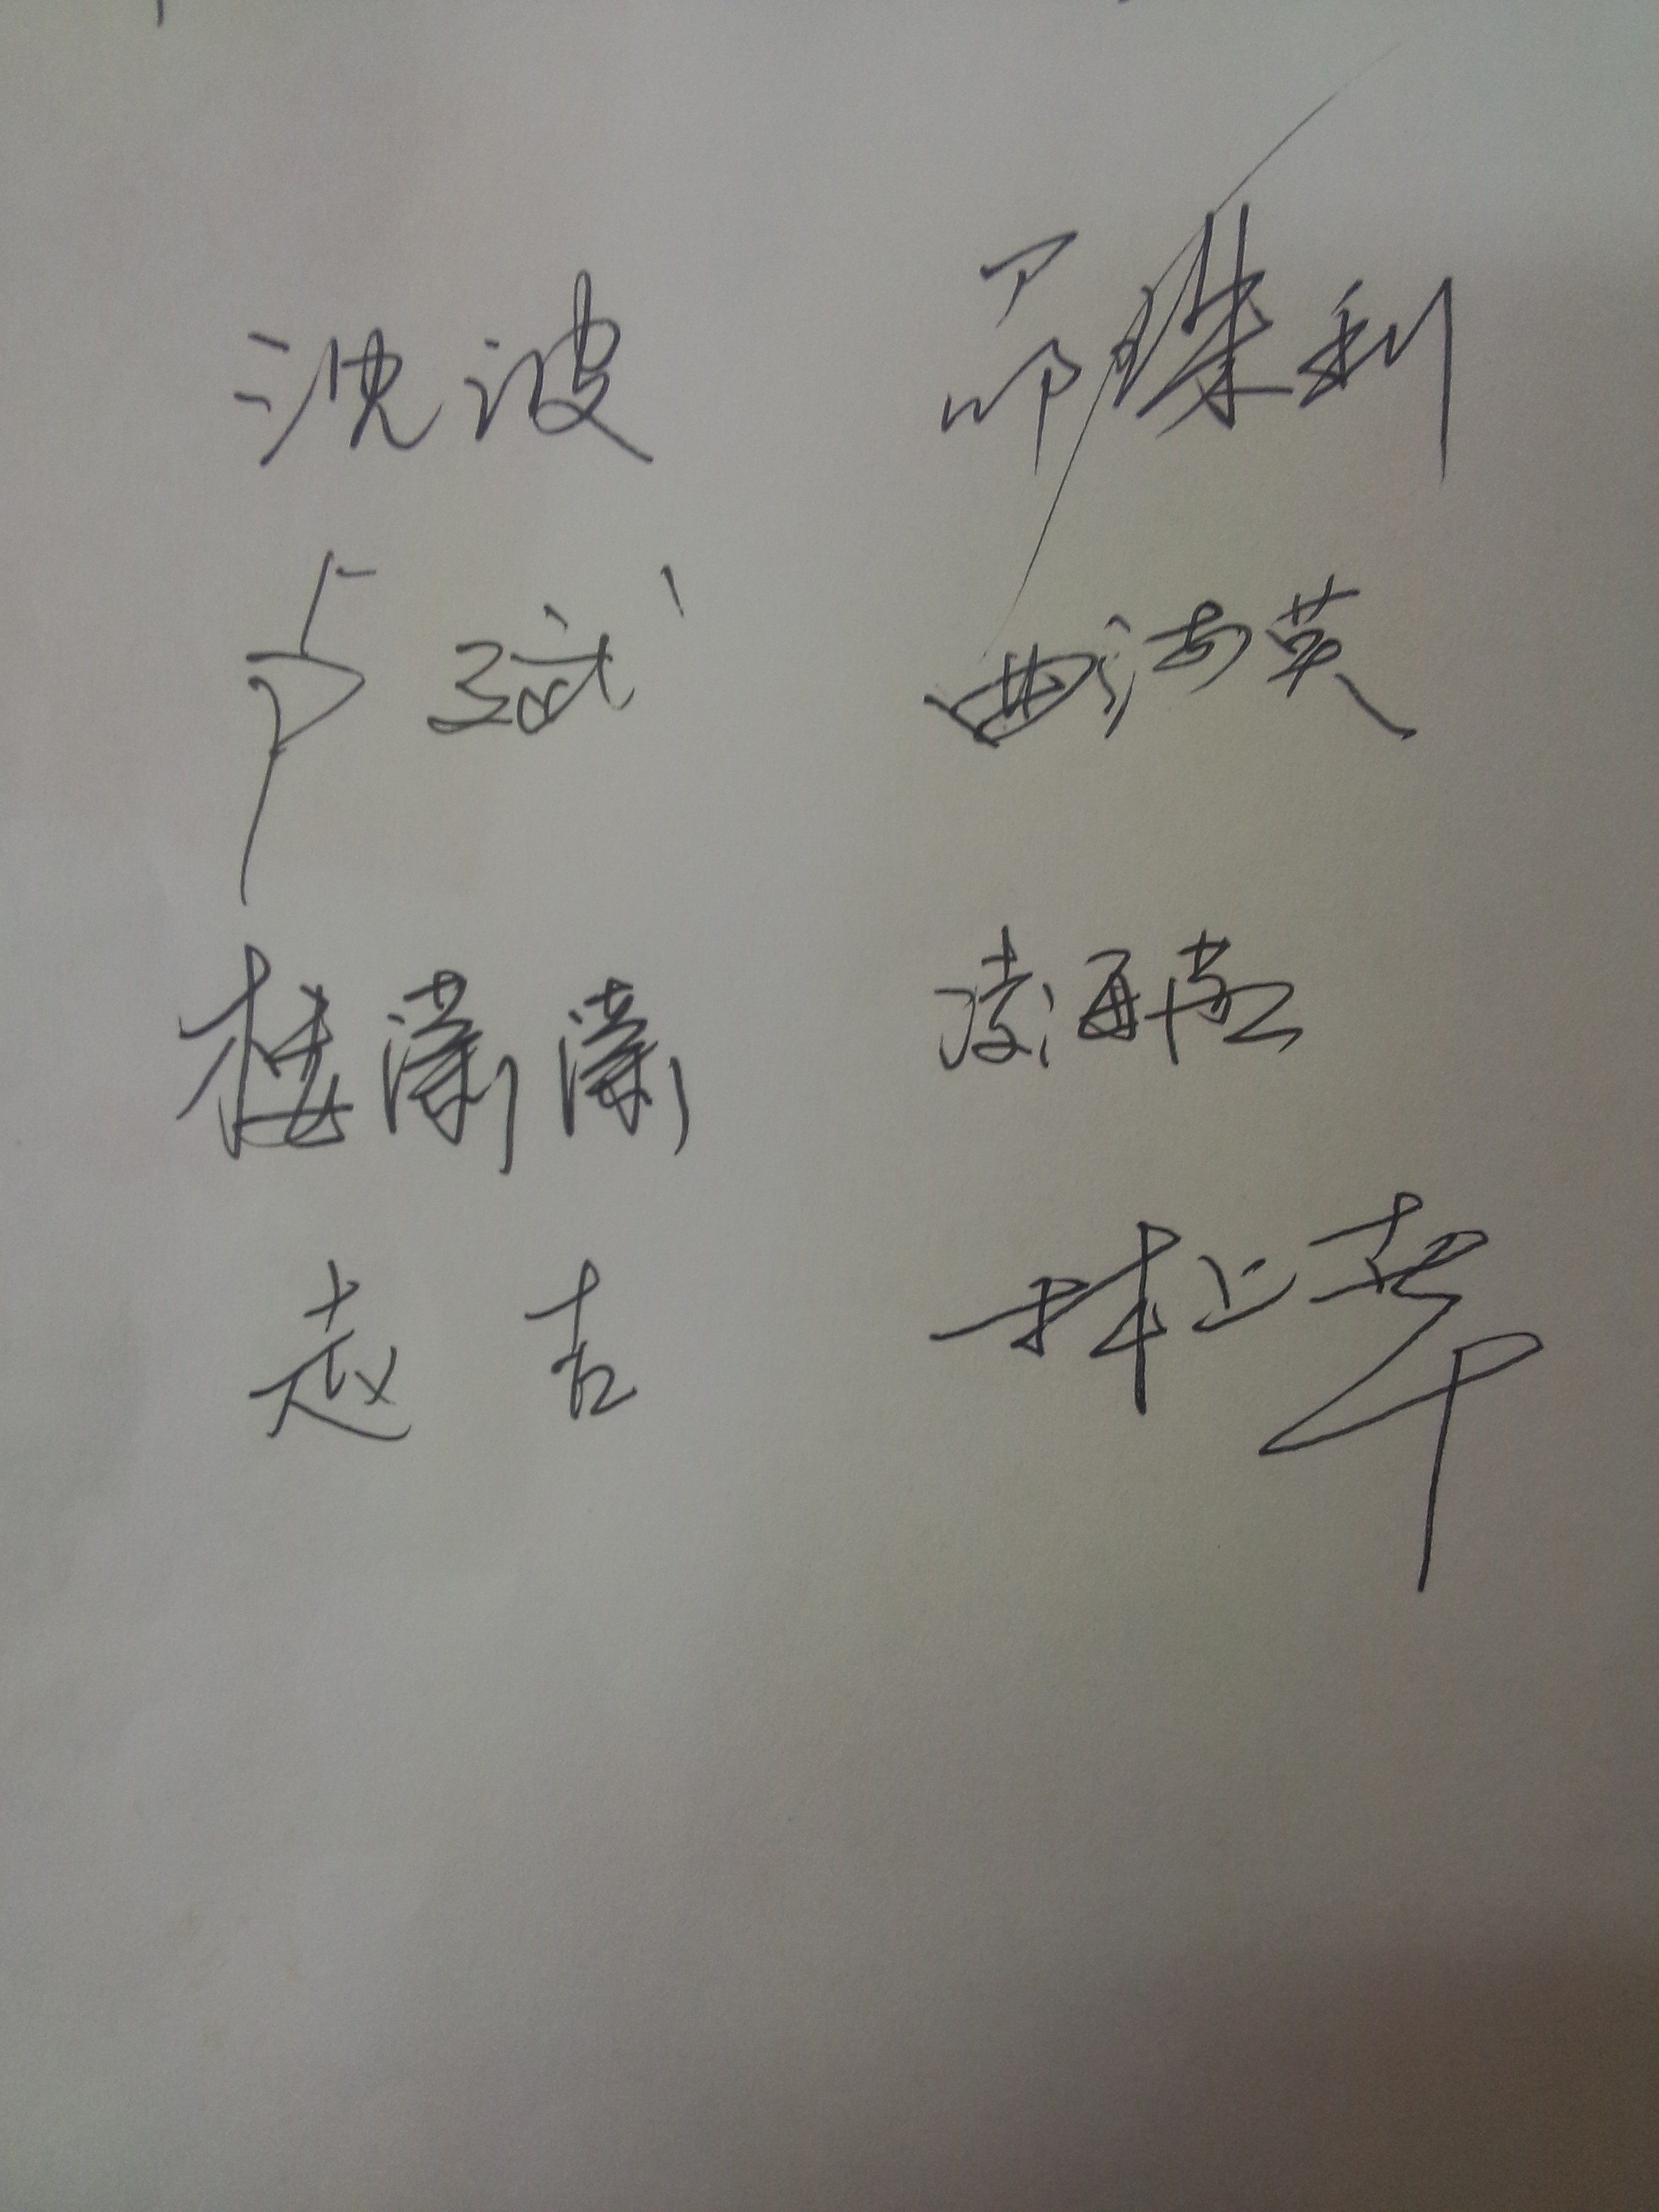 沈波 珠利
卢斌 曲海英
楼潇潇 凌海燕
赵吉 林上华